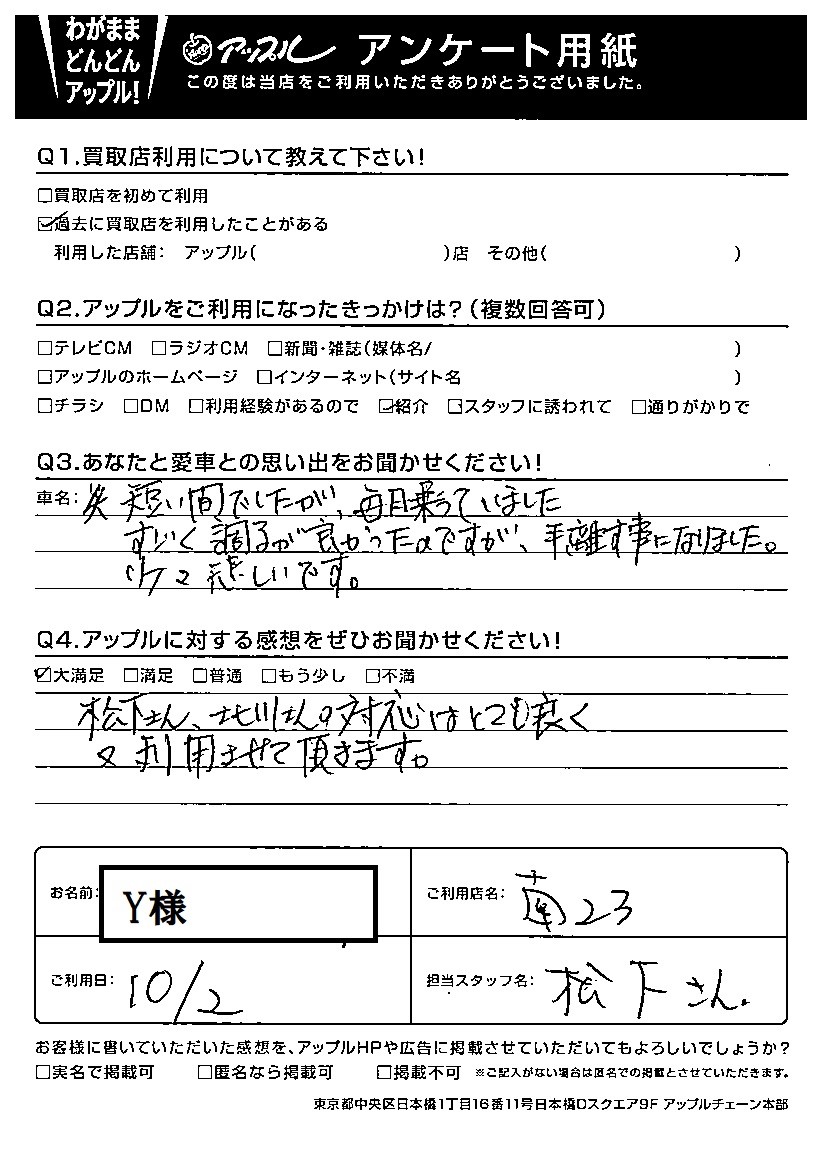 わがまま
どんどん
アップル!
アップル アンケート用紙
この度は当店をご利用いただきありがとうございました。
Q1.買取店利用について教えて下さい!
□買取店を初めて利用
☑過去に買取店を利用したことがある
利用した店舗: アップル( )店 その他( )
Q2.アップルをご利用になったきっかけは?(複数回答可)
□テレビCM □ラジオCM □新聞・雑誌(媒体名/ )
□アップルのホームページ □インターネット(サイト名 )
□チラシ □DM □利用経験があるので ☑紹介 □スタッフに誘われて □通りがかりで
Q3.あなたと愛車との思い出をお聞かせください!
車名: 短い間でしたが、毎日乗っていました
すごく調子が良かったのですが、手離す事になりました。
少々悲しいです。
Q4.アップルに対する感想をぜひお聞かせください!
☑大満足 □満足 □普通 □もう少し □不満
松下さん、北川さんの対応はとても良く
又利用させて頂きます。
お名前: Y様
ご利用店名: 南23
ご利用日: 10/2
担当スタッフ名: 松下さん.
お客様に書いていただいた感想を、アップルHPや広告に掲載させていただいてもよろしいでしょうか?
□実名で掲載可 □匿名なら掲載可 □掲載不可 ※ご記入がない場合は匿名での掲載とさせていただきます。
東京都中央区日本橋1丁目16番11号日本橋Dスクエア9F アップルチェーン本部